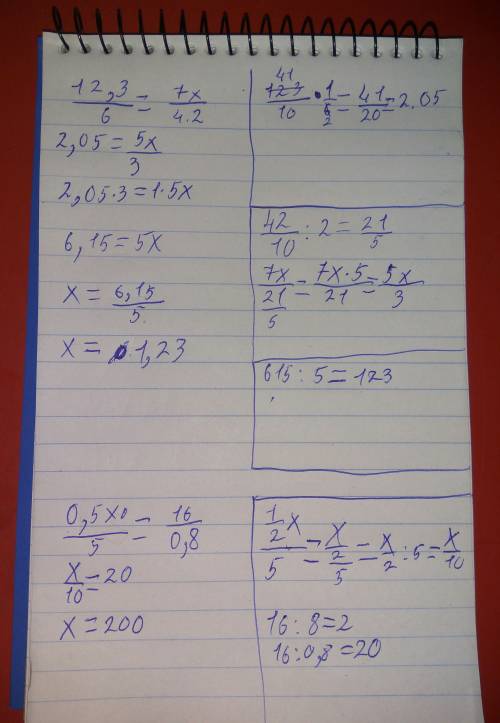 12,3/6 = 7x/4.2
2,05 = 5x/3
2,05·3 = 1·5x
6,15 = 5x
x = 6,15/5
x = 1,23
41
123/10 · 1/6 = 41/20 = 2.05
2
42/10 : 2 = 21/5
7x/(21/5) = 7x·5/21 = 5x/3
615 : 5 = 123
0,5x/5 = 16/0,8
x/10 = 20
x = 200
(1/2 x)/5 = x/(2/5) = x/2 : 5 = x/10
16 : 8 = 2
16 : 0,8 = 20